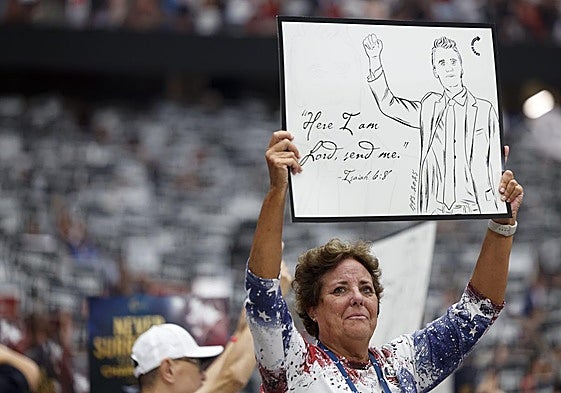 "Here I am
Lord, send me."
-Isaiah 6:8
NEVER
SURR